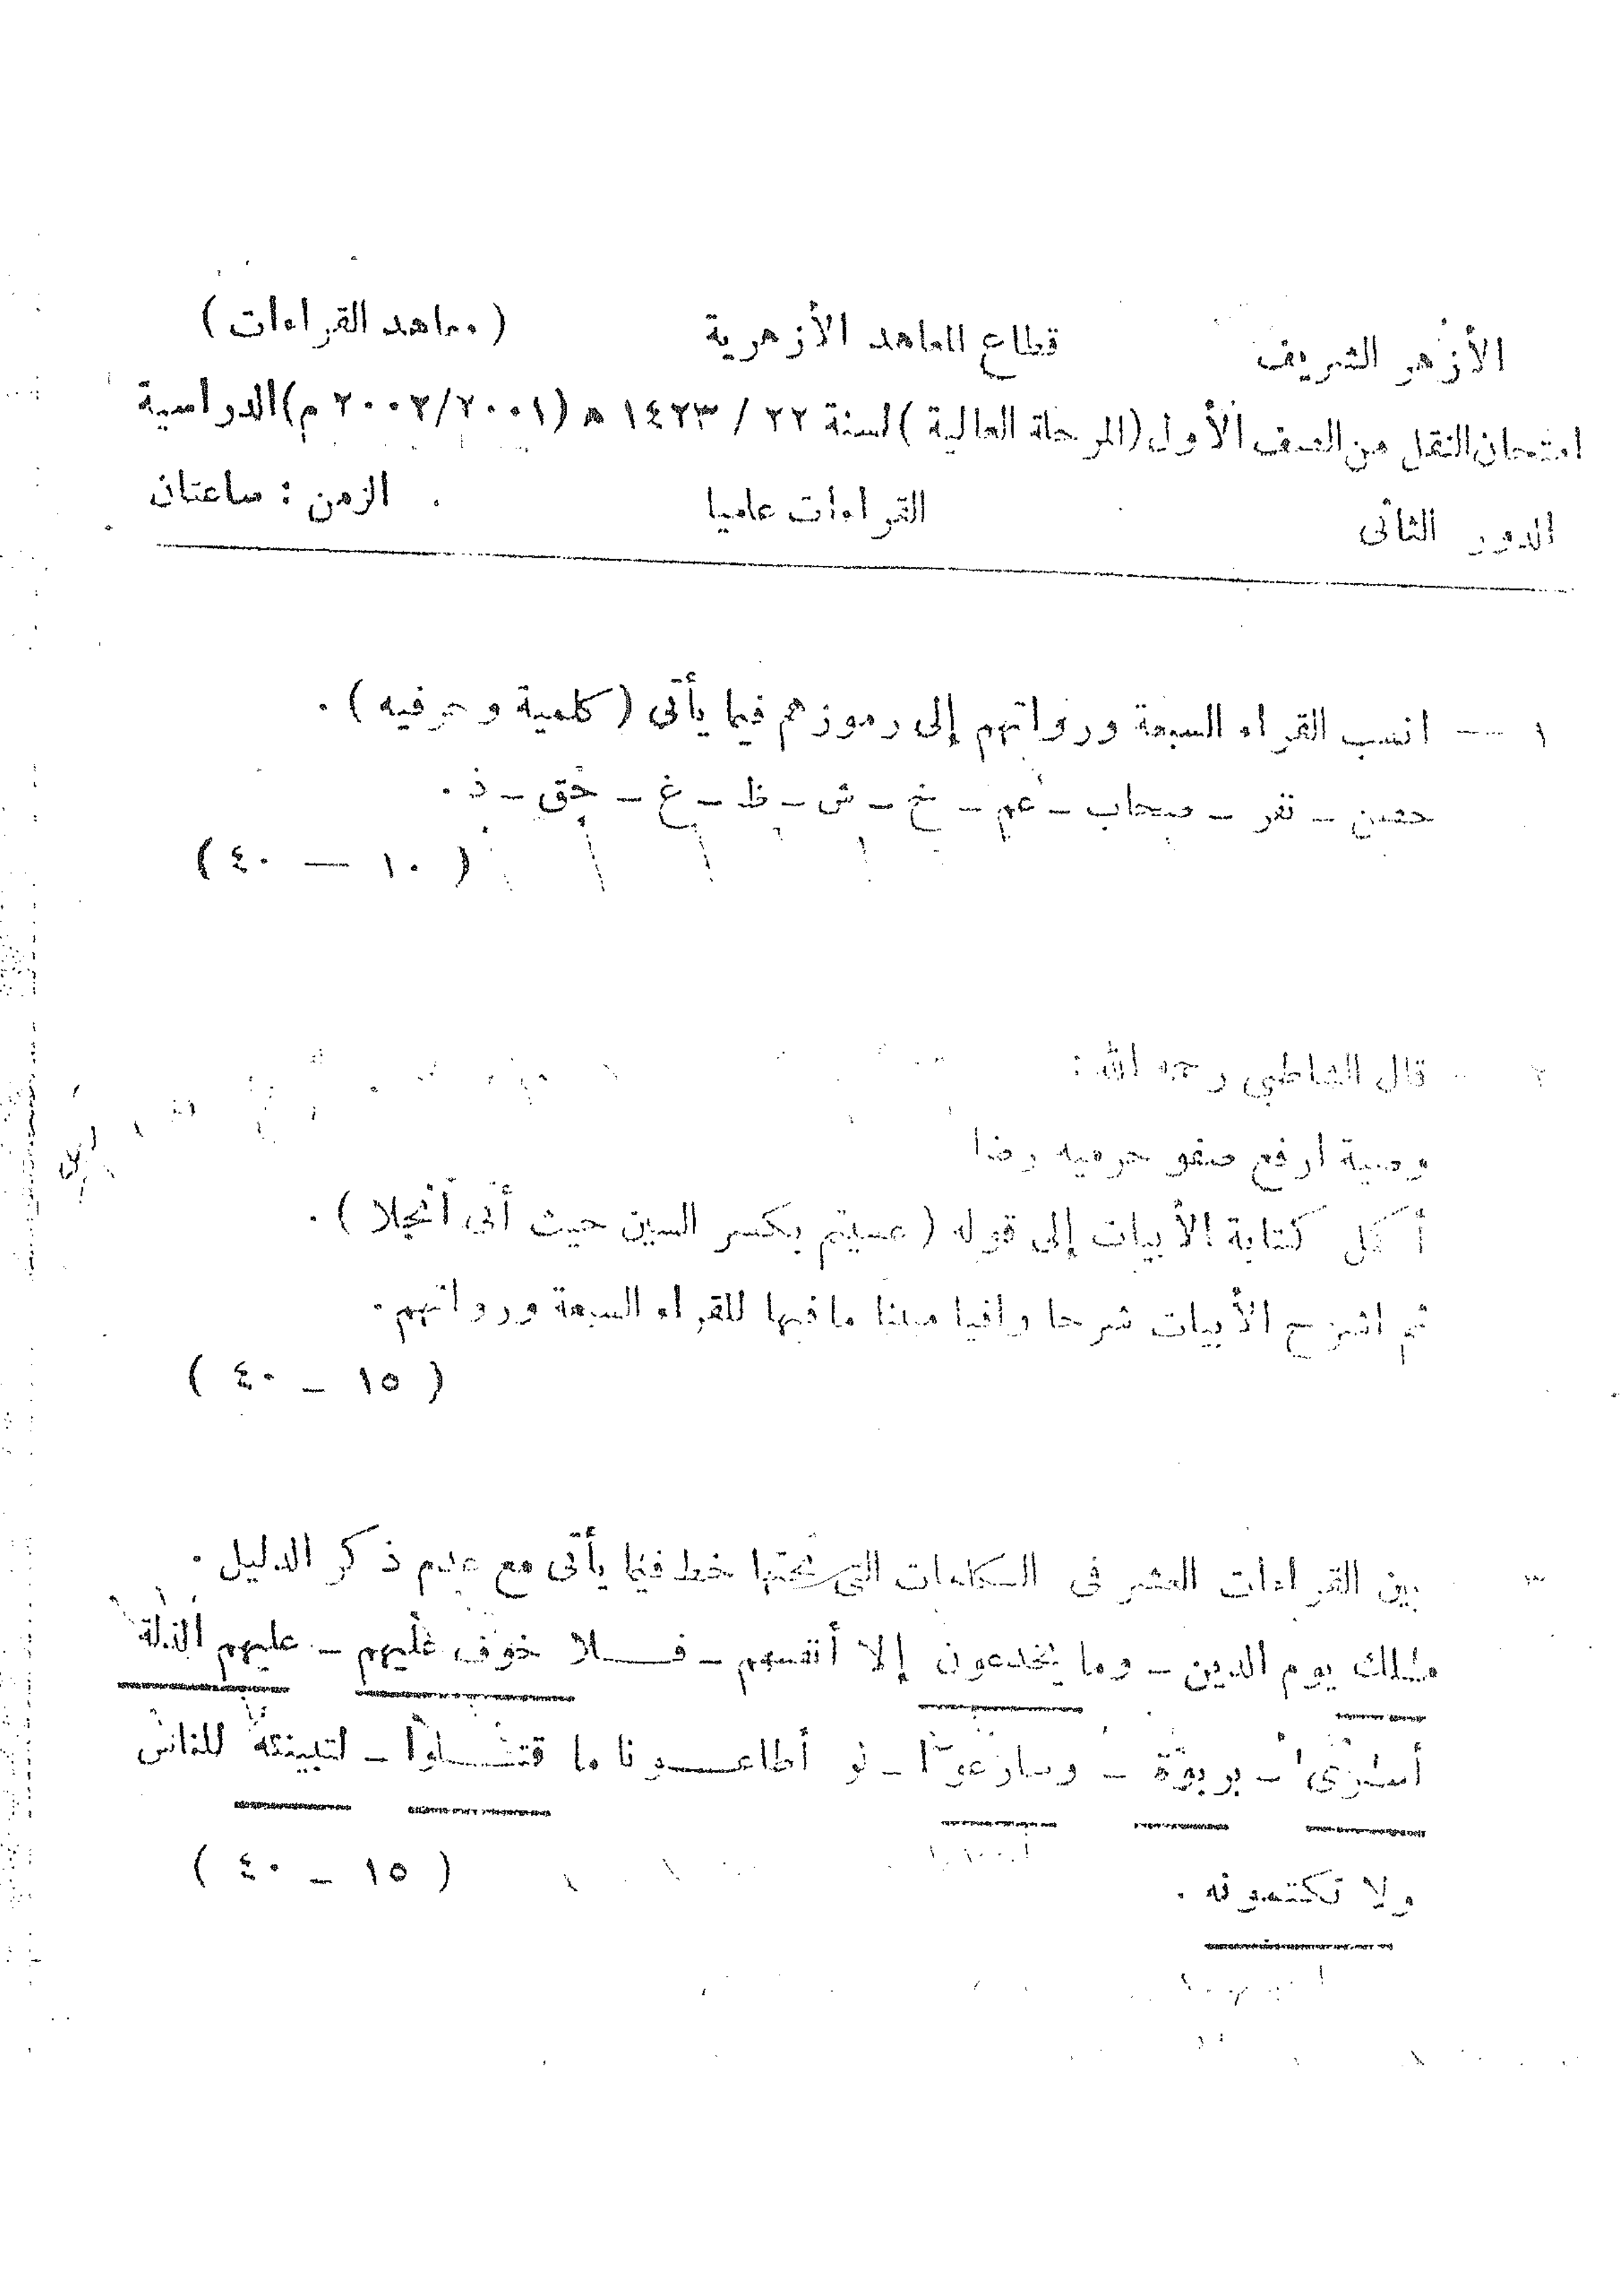 الأزهر الشريف قطاع المعاهد الأزهرية (معاهد القراءات)
امتحان النقل من الصف الأول (المرحلة العالية) لسنة ٢٢ / ١٤٢٣ هـ (٢٠٠٢/٢٠٠١ م) الدراسية
الدور الثانى القراءات علميا الزمن : ساعتان
١ — انسب القراء السبعة ورواتهم إلى رموزهم فيما يأتى (كلمية وحرفيه) .
حصن – نفر – صحاب – عم – خ – ش – ظ – غ – حق – ذ .
( ١٠ — ٤٠ )
٢ — قال الشاطبي رحمه الله :
وصية ارفع صفو حرميه رضا
أكمل كتابة الأبيات إلى قوله ( عسيتم بكسر السين حيث أتى انجلا ) .
ثم اشرح الأبيات شرحا وافيا مبينا ما فيها للقراء السبعة ورواتهم .
( ١٥ – ٤٠ )
٣ — بين القراءات العشر فى الكلمات التى تحتها خط فيما يأتى مع عدم ذكر الدليل .
ملك يوم الدين – وما يخدعون إلا أنفسهم – فلا خوف عليهم – عليهم الذلة
أسرى – بربوة – وسارعوا – لو أطاعونا ما قتلوا – لتبيننه للناس
ولا تكتمونه .
( ١٥ – ٤٠ )